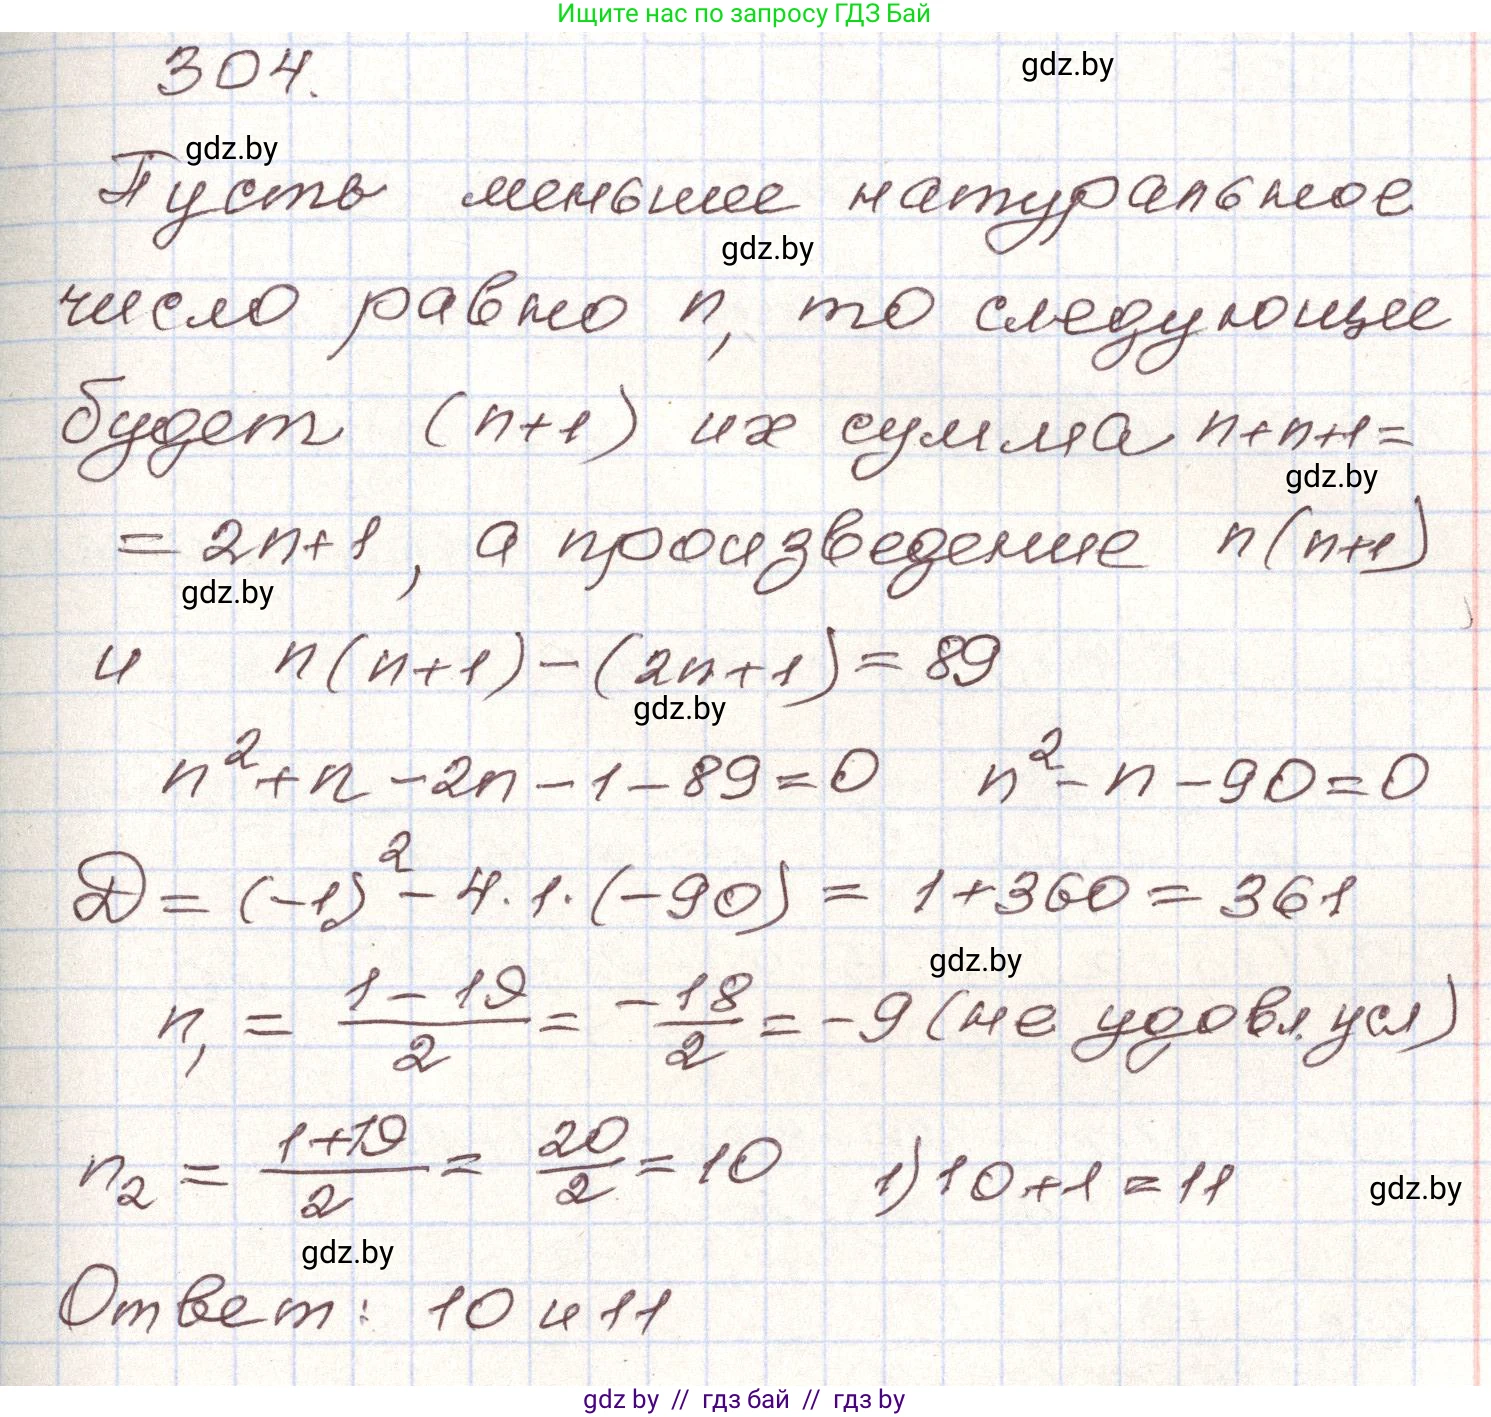 Ищите нас по запросу ГДЗ Бай
304.
gdz.by
gdz.by
Пусть меньшее натуральное
gdz.by
число равно n, то следующее
будет (n+1) их сумма n+n+1=
gdz.by
= 2n+1, а произведение n(n+1)
gdz.by
и n(n+1)-(2n+1)=89
gdz.by
n²+n-2n-1-89=0 n²-n-90=0
D=(-1)²-4·1·(-90) = 1+360=361
gdz.by
n₁ = (1-19)/2 = -18/2 = -9 (не удовл. усл)
n₂ = (1+19)/2 = 20/2 = 10 1) 10+1=11
gdz.by
gdz.by
Ответ: 10 и 11
gdz.by // гдз бай // гдз by